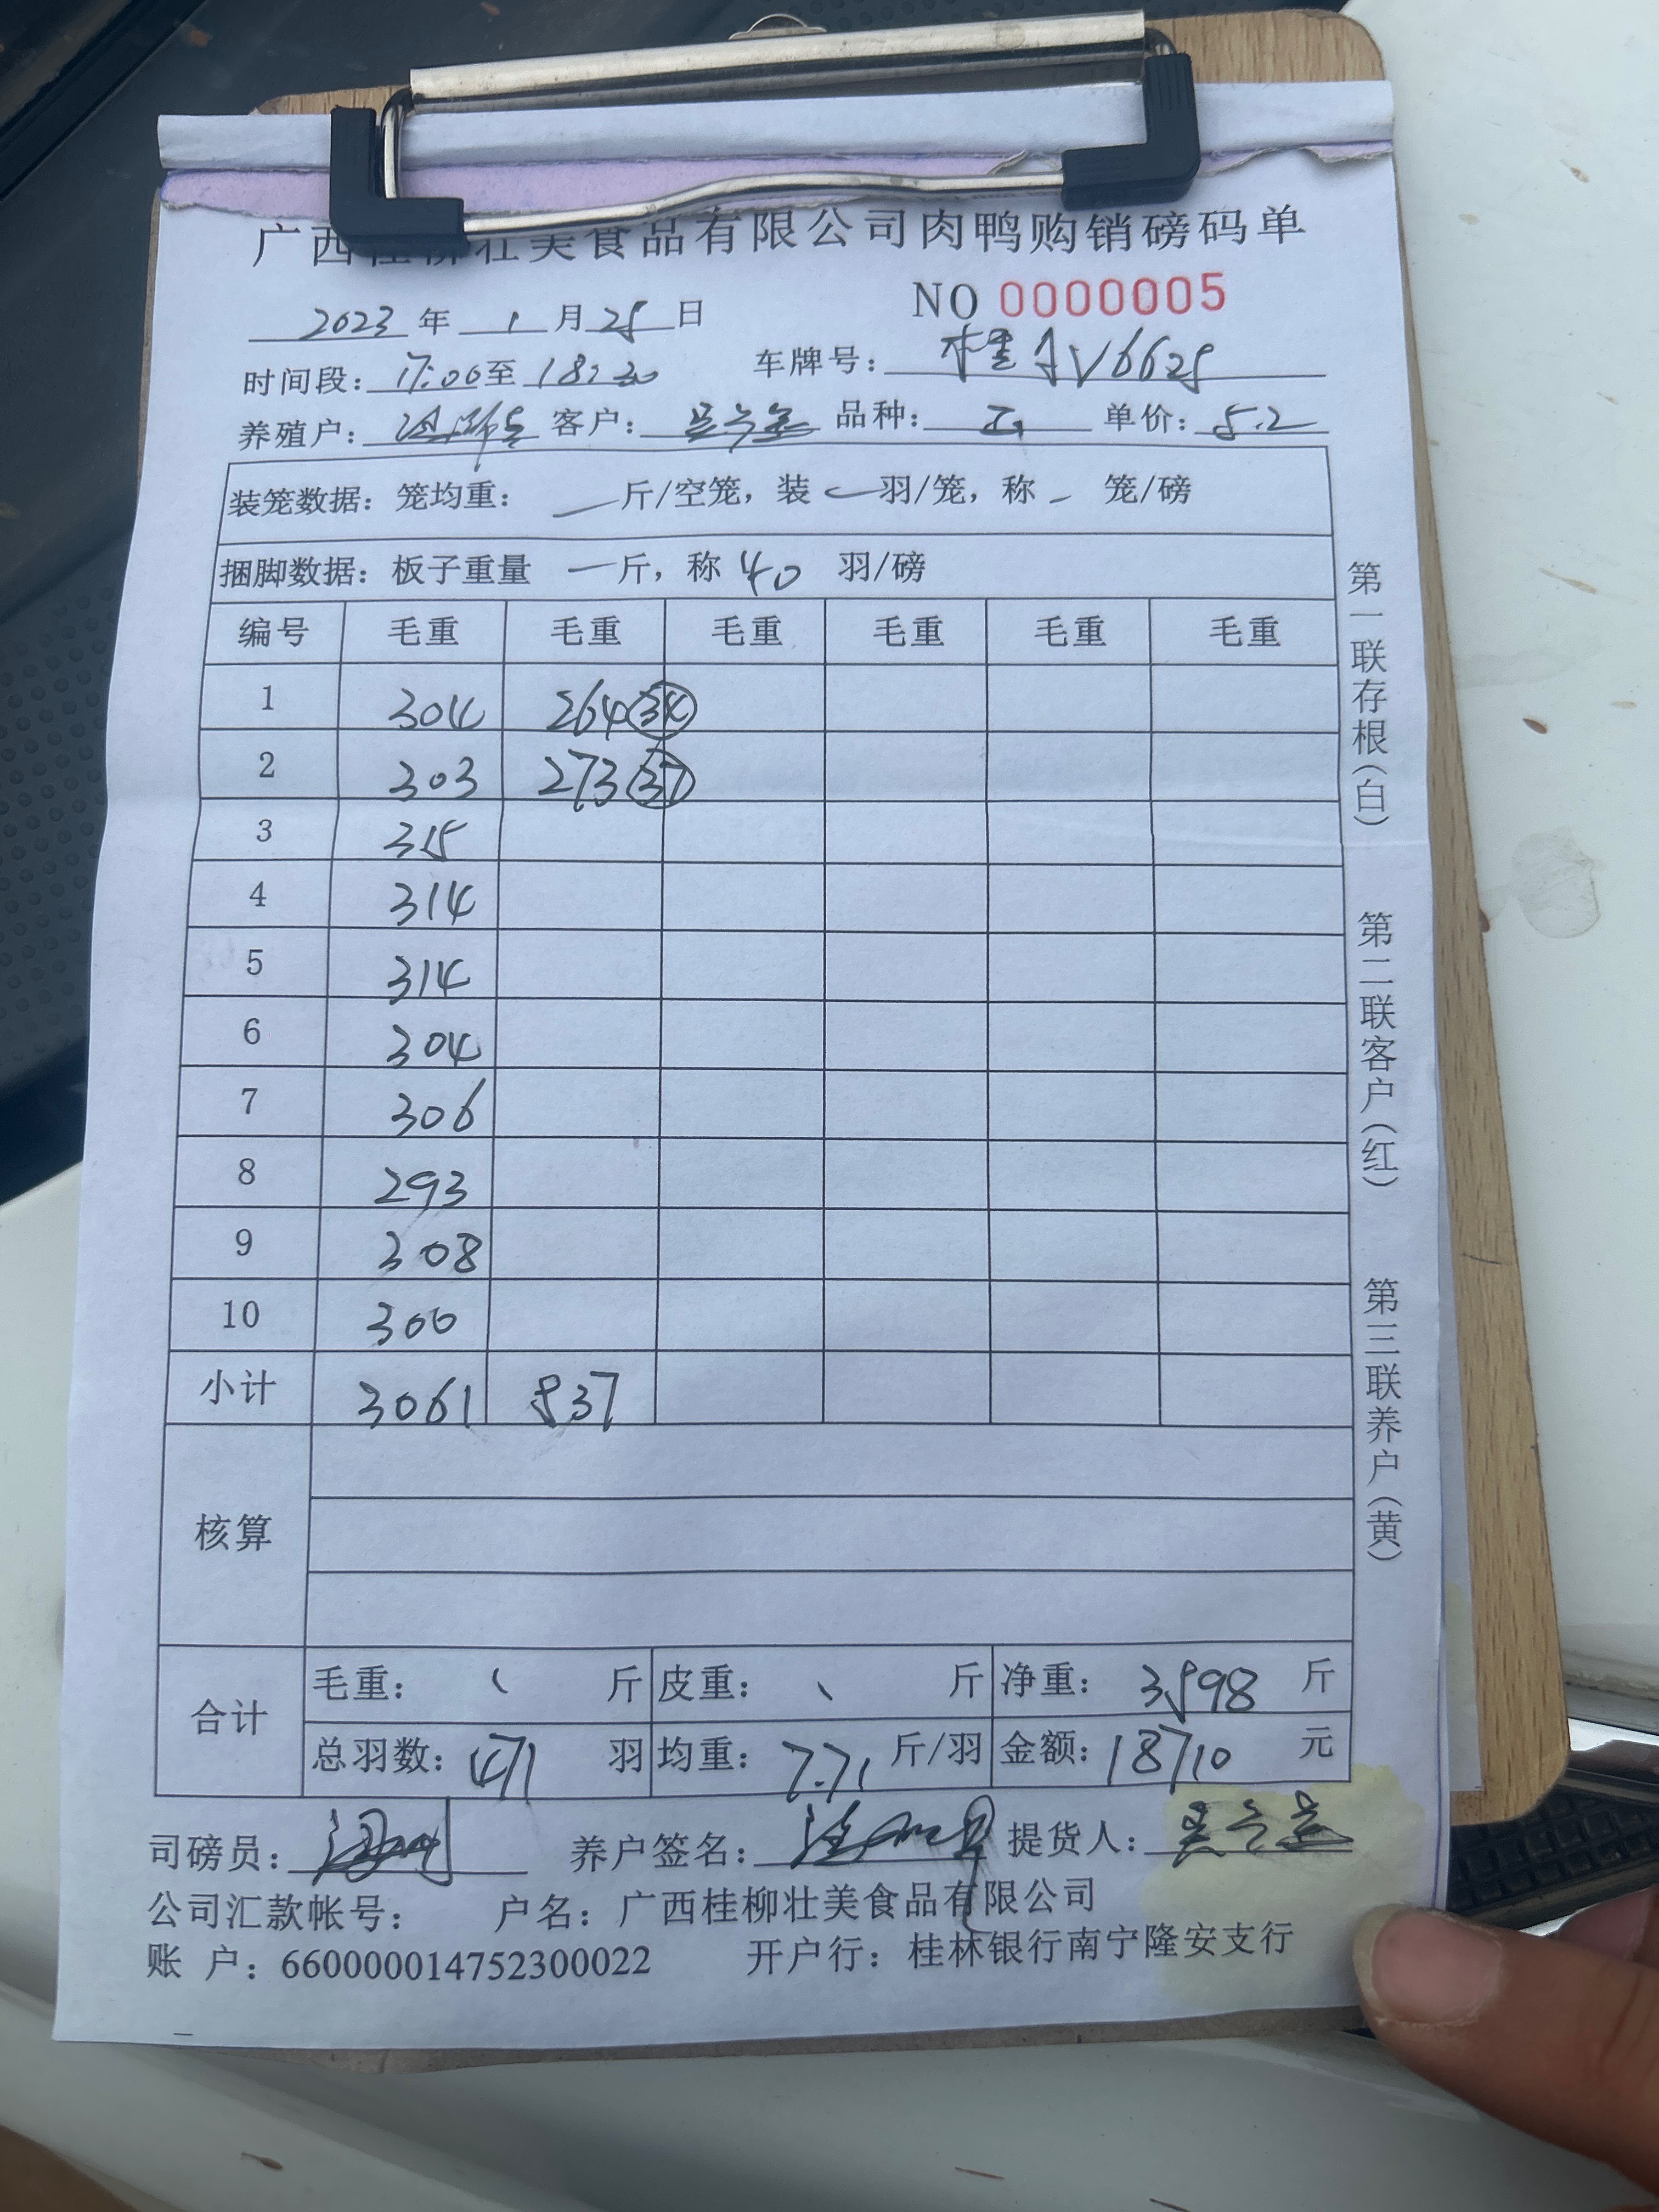 广西桂柳壮美食品有限公司肉鸭购销磅码单
NO 0000005
2023 年 1 月 25 日
时间段: 17:00 至 18:20 车牌号: 桂AV6625
养殖户: 客户: 品种: 单价: 5.2
装笼数据: 笼均重: — 斤/空笼, 装 — 羽/笼, 称 — 笼/磅
捆脚数据: 板子重量 — 斤, 称 40 羽/磅
编号 毛重 毛重 毛重 毛重 毛重 毛重
1 304 264 34
2 303 273 37
3 315
4 314
5 314
6 304
7 306
8 293
9 308
10 300
小计 3061 537
核算
合计
毛重: 斤 皮重: 斤 净重: 3598 斤
总羽数: 471 羽 均重: 7.71 斤/羽 金额: 18710 元
司磅员: 养户签名: 提货人:
公司汇款帐号: 户名: 广西桂柳壮美食品有限公司
账 户: 660000014752300022 开户行: 桂林银行南宁隆安支行
第一联存根(白) 第二联客户(红) 第三联养户(黄)